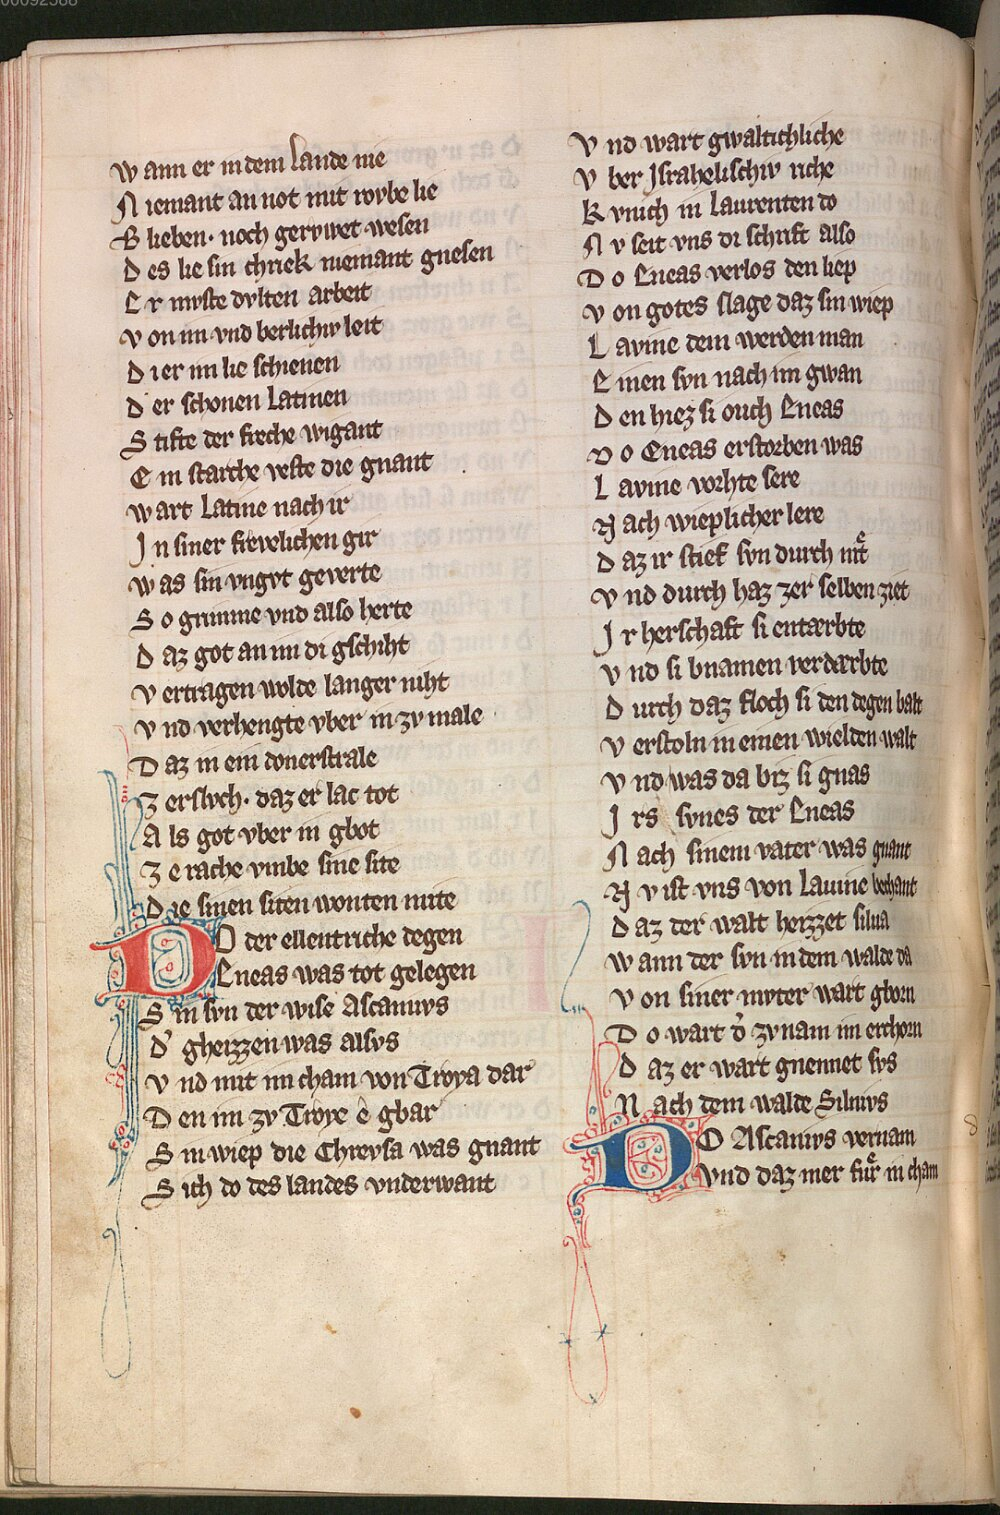 00092588
Wann er in dem Lande nie
Niemant an not mit rovbe lie
Blieben· noch gervwet wesen
Des lie sin chriek niemant gnesen
Er mvste dvlten arbeit
Von im vnd berlichiv leit
Dier im lie schienen
Der schonen Latinen
Stifte der freche wigant
Ein starche veste die gnant
Wart Latine nach ir
In siner frevelichen gir
Was sin vngvt geverte
So grimme vnd also herte
Daz got an im di gschiht
Vertragen wolde langer niht
Vnd verhengte vber in zv male
Daz in ein donerstrale
Zerslvch· daz er lac tot
Als got vber in gbot
Ze rache vmbe sine site
Die sinen siten wonten mite
DO der ellentriche degen
Eneas was tot gelegen
Sin svn der wise Ascanivs
D' gheizzen was alsvs
Vnd mit im cham von Troya dar
Den im zv Troye e gbar
Sin wiep die Chrevsa was gnant
Sich do des landes vnderwant
Vnd wart gwaltichliche
Vber Israhelischiv riche
Kvnich in Laurenten do
Nv seit vns di schrift also
Do Eneas verlos den liep
Von gotes slage daz sin wiep
Lavine dem werden man
Einen svn nach im gwan
Den hiez si ouch Eneas
Do Eneas erstorben was
Lavine vorhte sere
Nach wieplicher lere
Daz ir stief svn durch nit
Vnd durch haz zer selben ziet
Ir herschaft si entærbte
Vnd si bnamen verdærbte
Durch daz floch si den degen balt
Verstoln in einen wielden walt
Vnd was da biz si gnas
Irs svnes der Eneas
Nach sinem vater was gnant
Nv ist vns von Lauine bechant
Daz der walt heizzet silua
Wann der svn in dem walde da
Von siner mvter wart gborn
Do wart d' zvnam im erchorn
Daz er wart gnennet svs
Nach dem walde Siluivs
DO Ascanivs vernam
Vnd daz mer fuͤr in cham